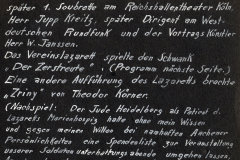 später 1. Soubrette am Reichshallentheater Köln,
Herr Jupp Kreitz, später Dirigent am West-
deutschen Rundfunk und der Vortragskünstler
Herr W. Janssen.
Das Vereinslazarett spielte den Schwank
„Der Zerstreute“. (Programm nächste Seite.)
Eine andere Aufführung des Lazaretts brachte
„Zriny“ von Theodor Körner.
(Nachspiel: Der Jude Heidelberg als Patient d.
Lazaretts Marienhospiz hatte ohne mein Wissen
und gegen meinen Willen bei namhaften Aachener
Persönlichkeiten eine Spendenliste zur Veranstaltung
unserer Soldatenunterhaltungsabende umgehen lassen,